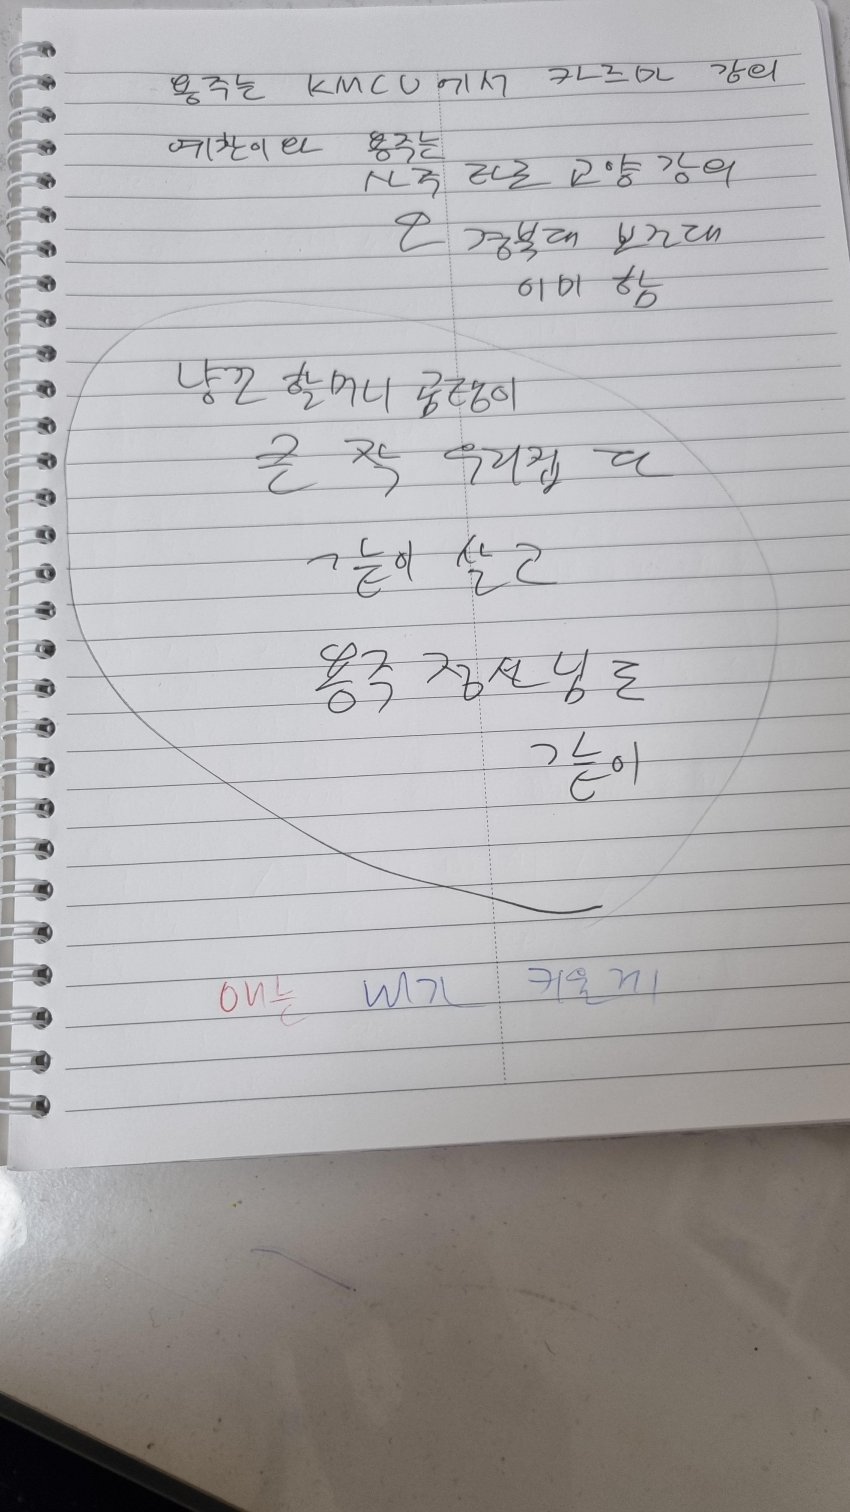 용주는 KMCU에서 카르마 강의
예찬이와 용주는
사주 타로 교양 강의
경북대 보건대
이미 함
할머니
큰 작 우리집 다
같이 살고
용주 점선님도
같이
애는 내가 키울게